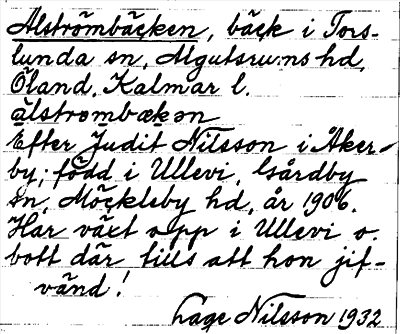 Alströmbäcken, bäck i Tors-
lunda sn, Algutsrums hd,
Öland, Kalmar l.
alstrᴏmbækən
Efter Judit Nilsson i Åker-
by; född i Ullevi, Gårdby
sn, Möckleby hd, år 1906.
Har växt opp i Ullevi o.
bott där tills att hon jif-
vänd!
Lage Nilsson 1932